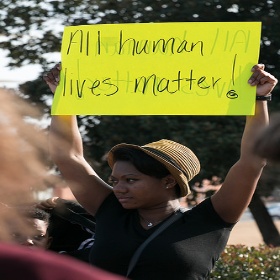 All human
lives matter!